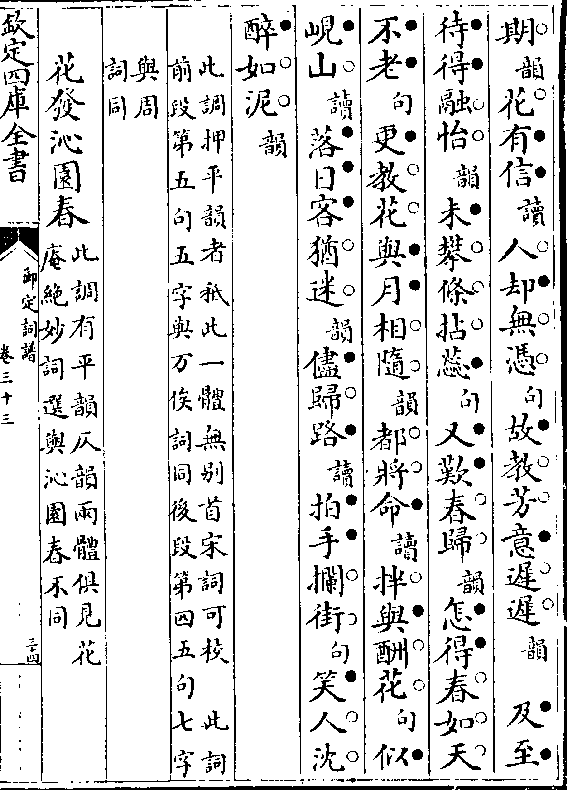 期韻花有信讀人却無憑句故教芳意遲遲韻　及至
待得融怡韻未攀條拈蕊句又歎春歸韻怎得春如天
不老句更教花與月相隨韻都將命讀拌與酬花句似
峴山讀落日客猶迷韻儘歸路讀拍手攔街句笑人沈
醉如泥韻
此調押平韻者秖此一體無别首宋詞可校　此詞
前段第五句五字與万俟詞同後段第四五句七字
與周
詞同
花發沁園春
此調有平韻仄韻兩體俱見花
庵絶妙詞選與沁園春不同
欽定四庫全書
御定詞譜
卷三十三
三十四